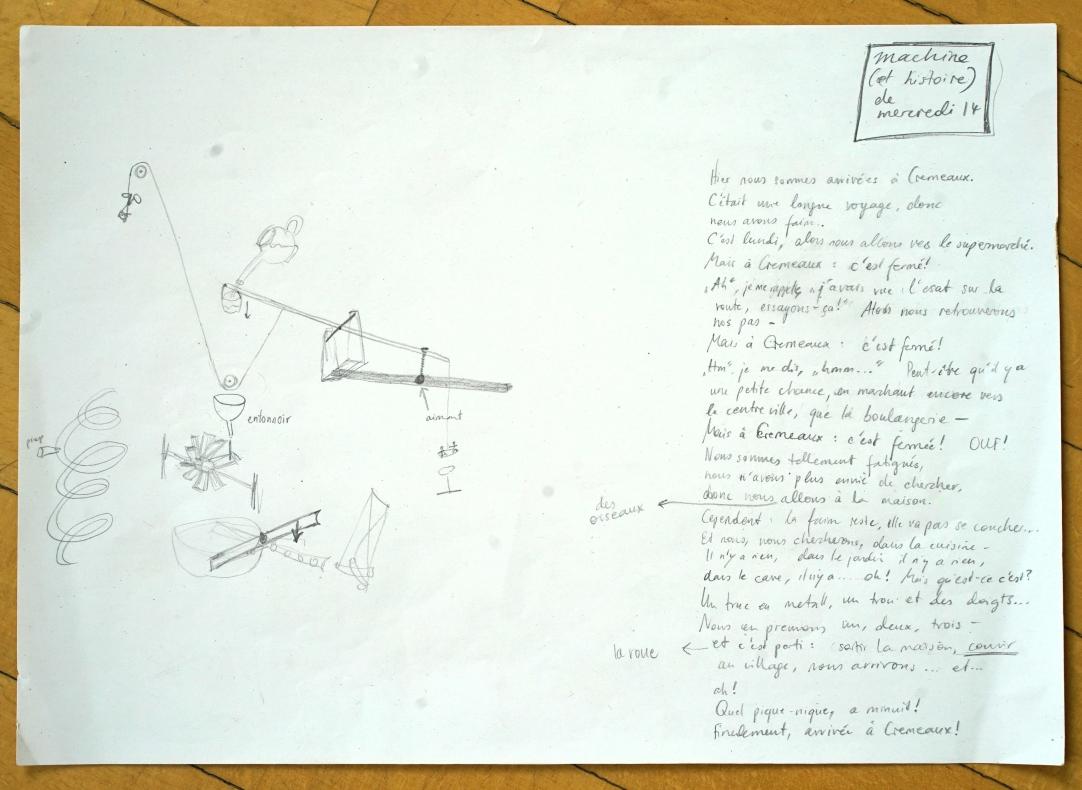 machine
(et histoire)
de
mercredi 14
Hier nous sommes arrivées à Cremeaux.
C'était une longue voyage, donc
nous avons faim..
C'est lundi, alors nous allons vers le supermarché.
Mais à Cremeaux : c'est fermé!
„Ah", je me rappelle, „j'avais vue l'esat sur la
route, essayons-ça!" Alors nous retrouverons
nos pas –
Mais à Cremeaux : c'est fermé!
„Hm", je me dis, „hmm..." Peut-être qu'il y a
une petite chance, en marchant encore vers
le centre ville, que la boulangerie –
Mais à Cremeaux : c'est fermée! OUF!
Nous sommes tellement fatigués,
nous n'avons plus envie de chercher,
donc nous allons à la maison.
des
oiseaux
Cependent : la faim reste, elle va pas se coucher...
Et nous, nous chercherons, dans la cuisine –
Il n'y a rien, dans le jardin il n'y a rien,
dans le cave, il n'y a..... oh! Mais qu'est-ce c'est?
Un truc en metall, un trou et des doigts...
Nous en prenons un, deux, trois –
et c'est parti : sortir la maison, couvrir
la roue
au village, nous arrivons ... et...
ah!
Quel pique-nique, a minuit!
Finalement, arrivée à Cremeaux!
entonnoir
aimant